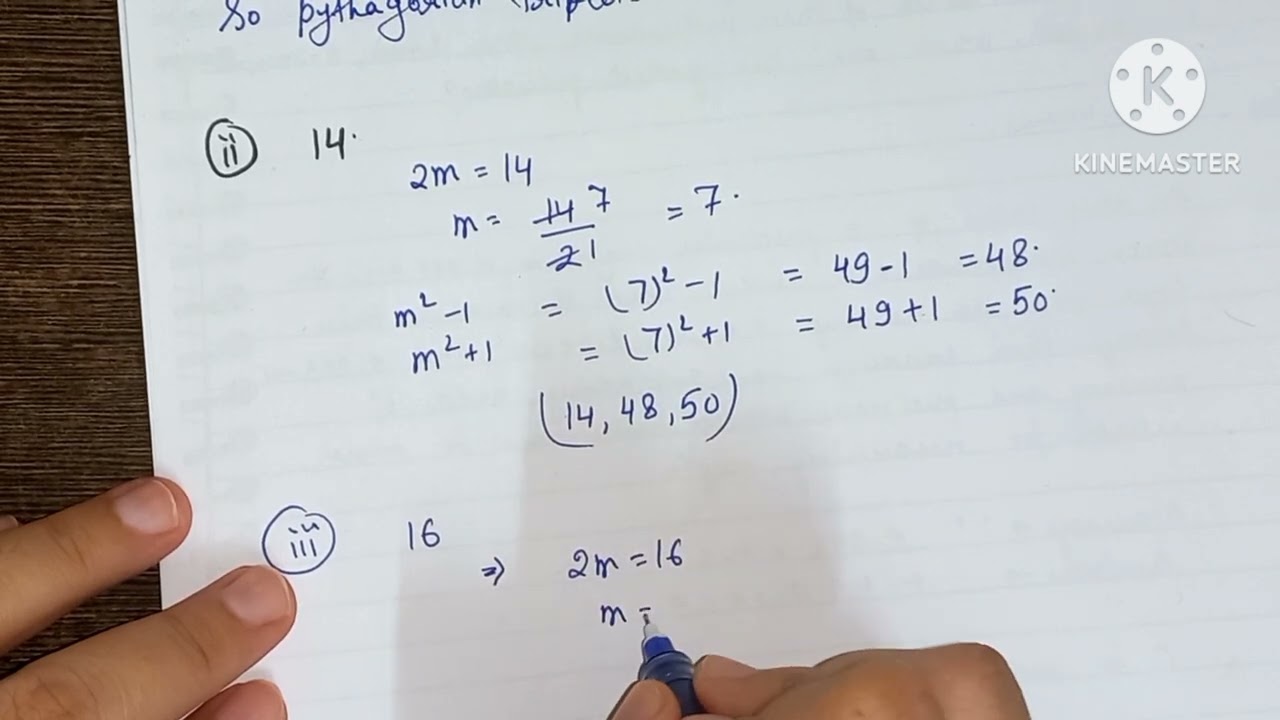 So pythagorian
K
KINEMASTER
ii 14.
2m = 14
m = 14 7 / 2 1 = 7.
m² - 1 = (7)² - 1 = 49 - 1 = 48.
m² + 1 = (7)² + 1 = 49 + 1 = 50.
(14, 48, 50)
iii 16
⇒ 2m = 16
m =